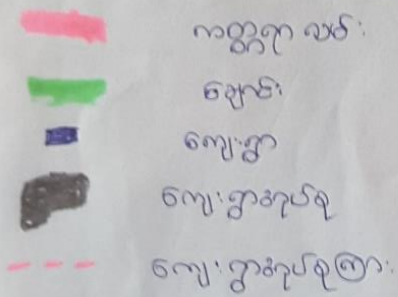 ကတ္တရာ လမ်း
ချောင်း
ကျေးရွာ
ကျေးရွာအုပ်စု
ကျေးရွာအုပ်စုကြား